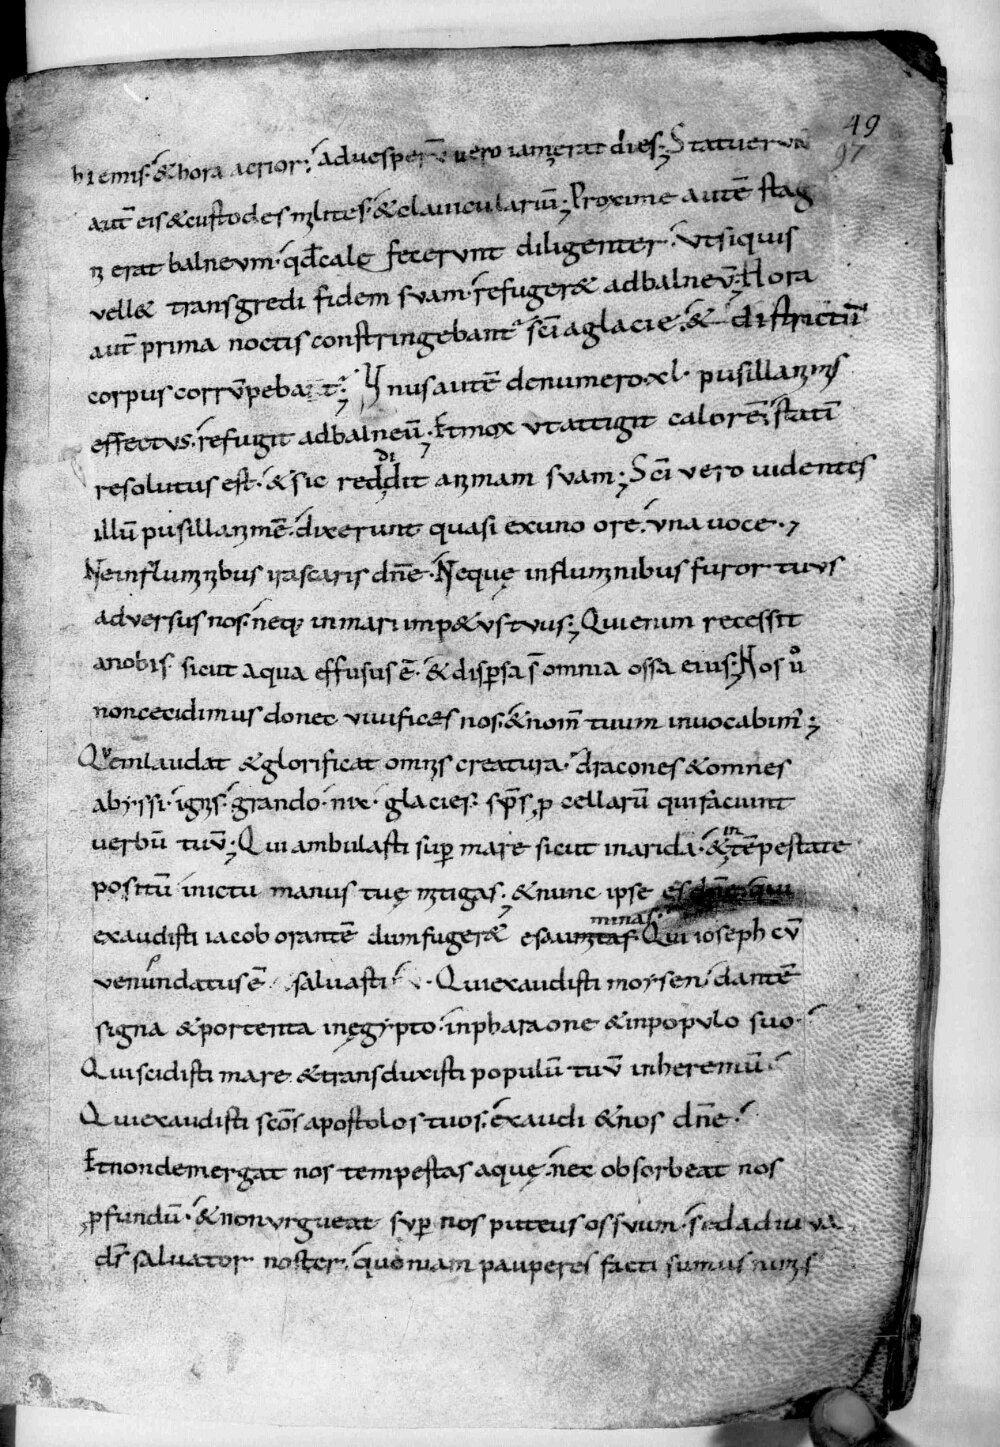 49
97
hiemis· & hora acrior· ad vesperū vero iam erat dies; Statuerun
aut̄ eis & custodes milites· & clavicularium; Proxime autē stag
ni erat balneum· qđ cale fecerunt diligenter· ut siquis
vell& transgredi fidem suam· refuger& ad balneū; Hora
aut̄ prima noctis constringebant̄ sc̄i a glacie· & districtū
corpus corrūpeba t̄; Unus autē denumero·xl· pusillanimis
effectus· refugit ad balneū; Et mox ut attigit calorē· statī
resolutus est· & sic reddidit animam suam; Sc̄i vero videntes
illū pusillanimē· dixerunt quasi ex uno ore· una voce·;
Ne in fluminibus irascaris dn̄e· Neque in fluminibus furor tuus
adversus nos· neq; in mari imp&us tuus; Qui enim recessit
a nobis· sicut aqua effusus ē· & dispersa s̄ omnia ossa eius; Nos ů
non cecidimus donec vivifices nos· & nom̄ tuum invocabim̄;
Quem laudat & glorificat omnis creatura· dracones & omnes
abyssi· ignis· grando· nix· glacies· sp̄s ꝓcellarū qui faciunt
verbū tuū; Qui ambulasti sup̄ mare sicut in arida· & in tēpestate
positū in ictu manus tuę mitigas· & nunc ipse es dn̄e qui
exaudisti iacob orantē dum fuger& esau minas· Qui ioseph cū
venundatus ē salvasti· Qui exaudisti moysen· dantē
signa & portenta in ęgypto· in pharaone & in populo suo·
Qui scidisti mare & transduxisti populū tuū in heremū·
Qui exaudisti sc̄os apostolos tuos· exaudi & nos dn̄e·
Et non demergat nos tempestas aquę· nec obsorbeat nos
ꝓfundū· & non urgueat sup̄ nos puteus os suum· sed adiuva
ds̄ salvator noster· quoniam pauperes facti sumus nimis